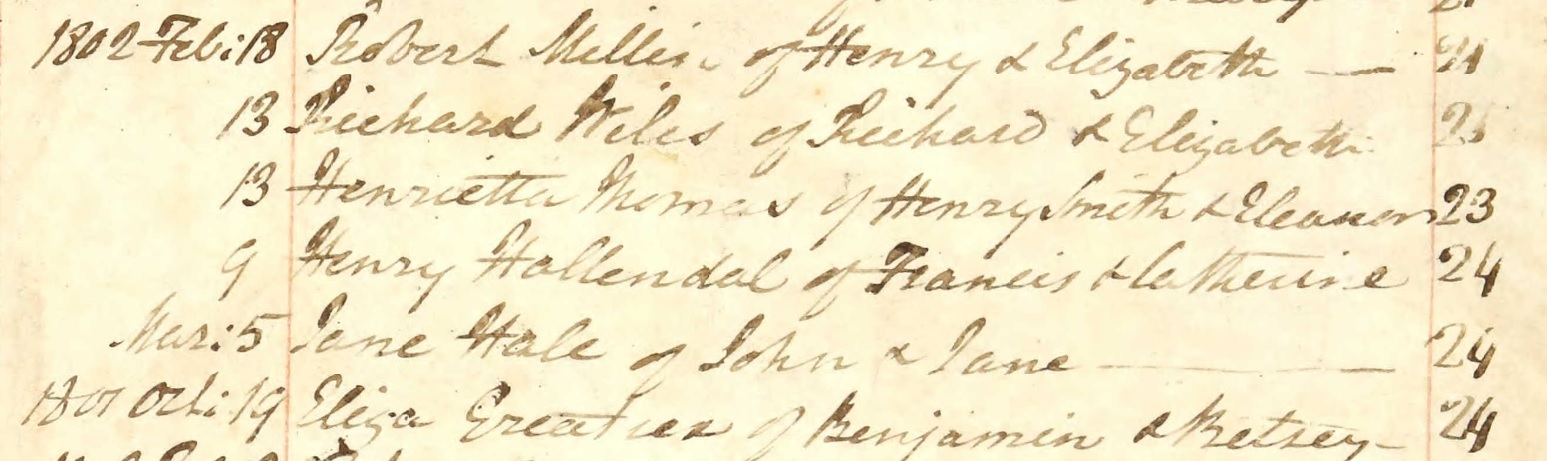 1802 Feb: 18 Robert Millin of Henry & Elizabeth — 24
13 Richard Wiles of Richard & Elizabeth 25
13 Henrietta Thomas of Henry Smith & Eleanor 23
9 Henry Hallendal of Francis & Catherine 24
Mar: 5 Jane Hale of John & Jane — 24
1801 Oct: 19 Eliza of Benjamin & Betsey 24